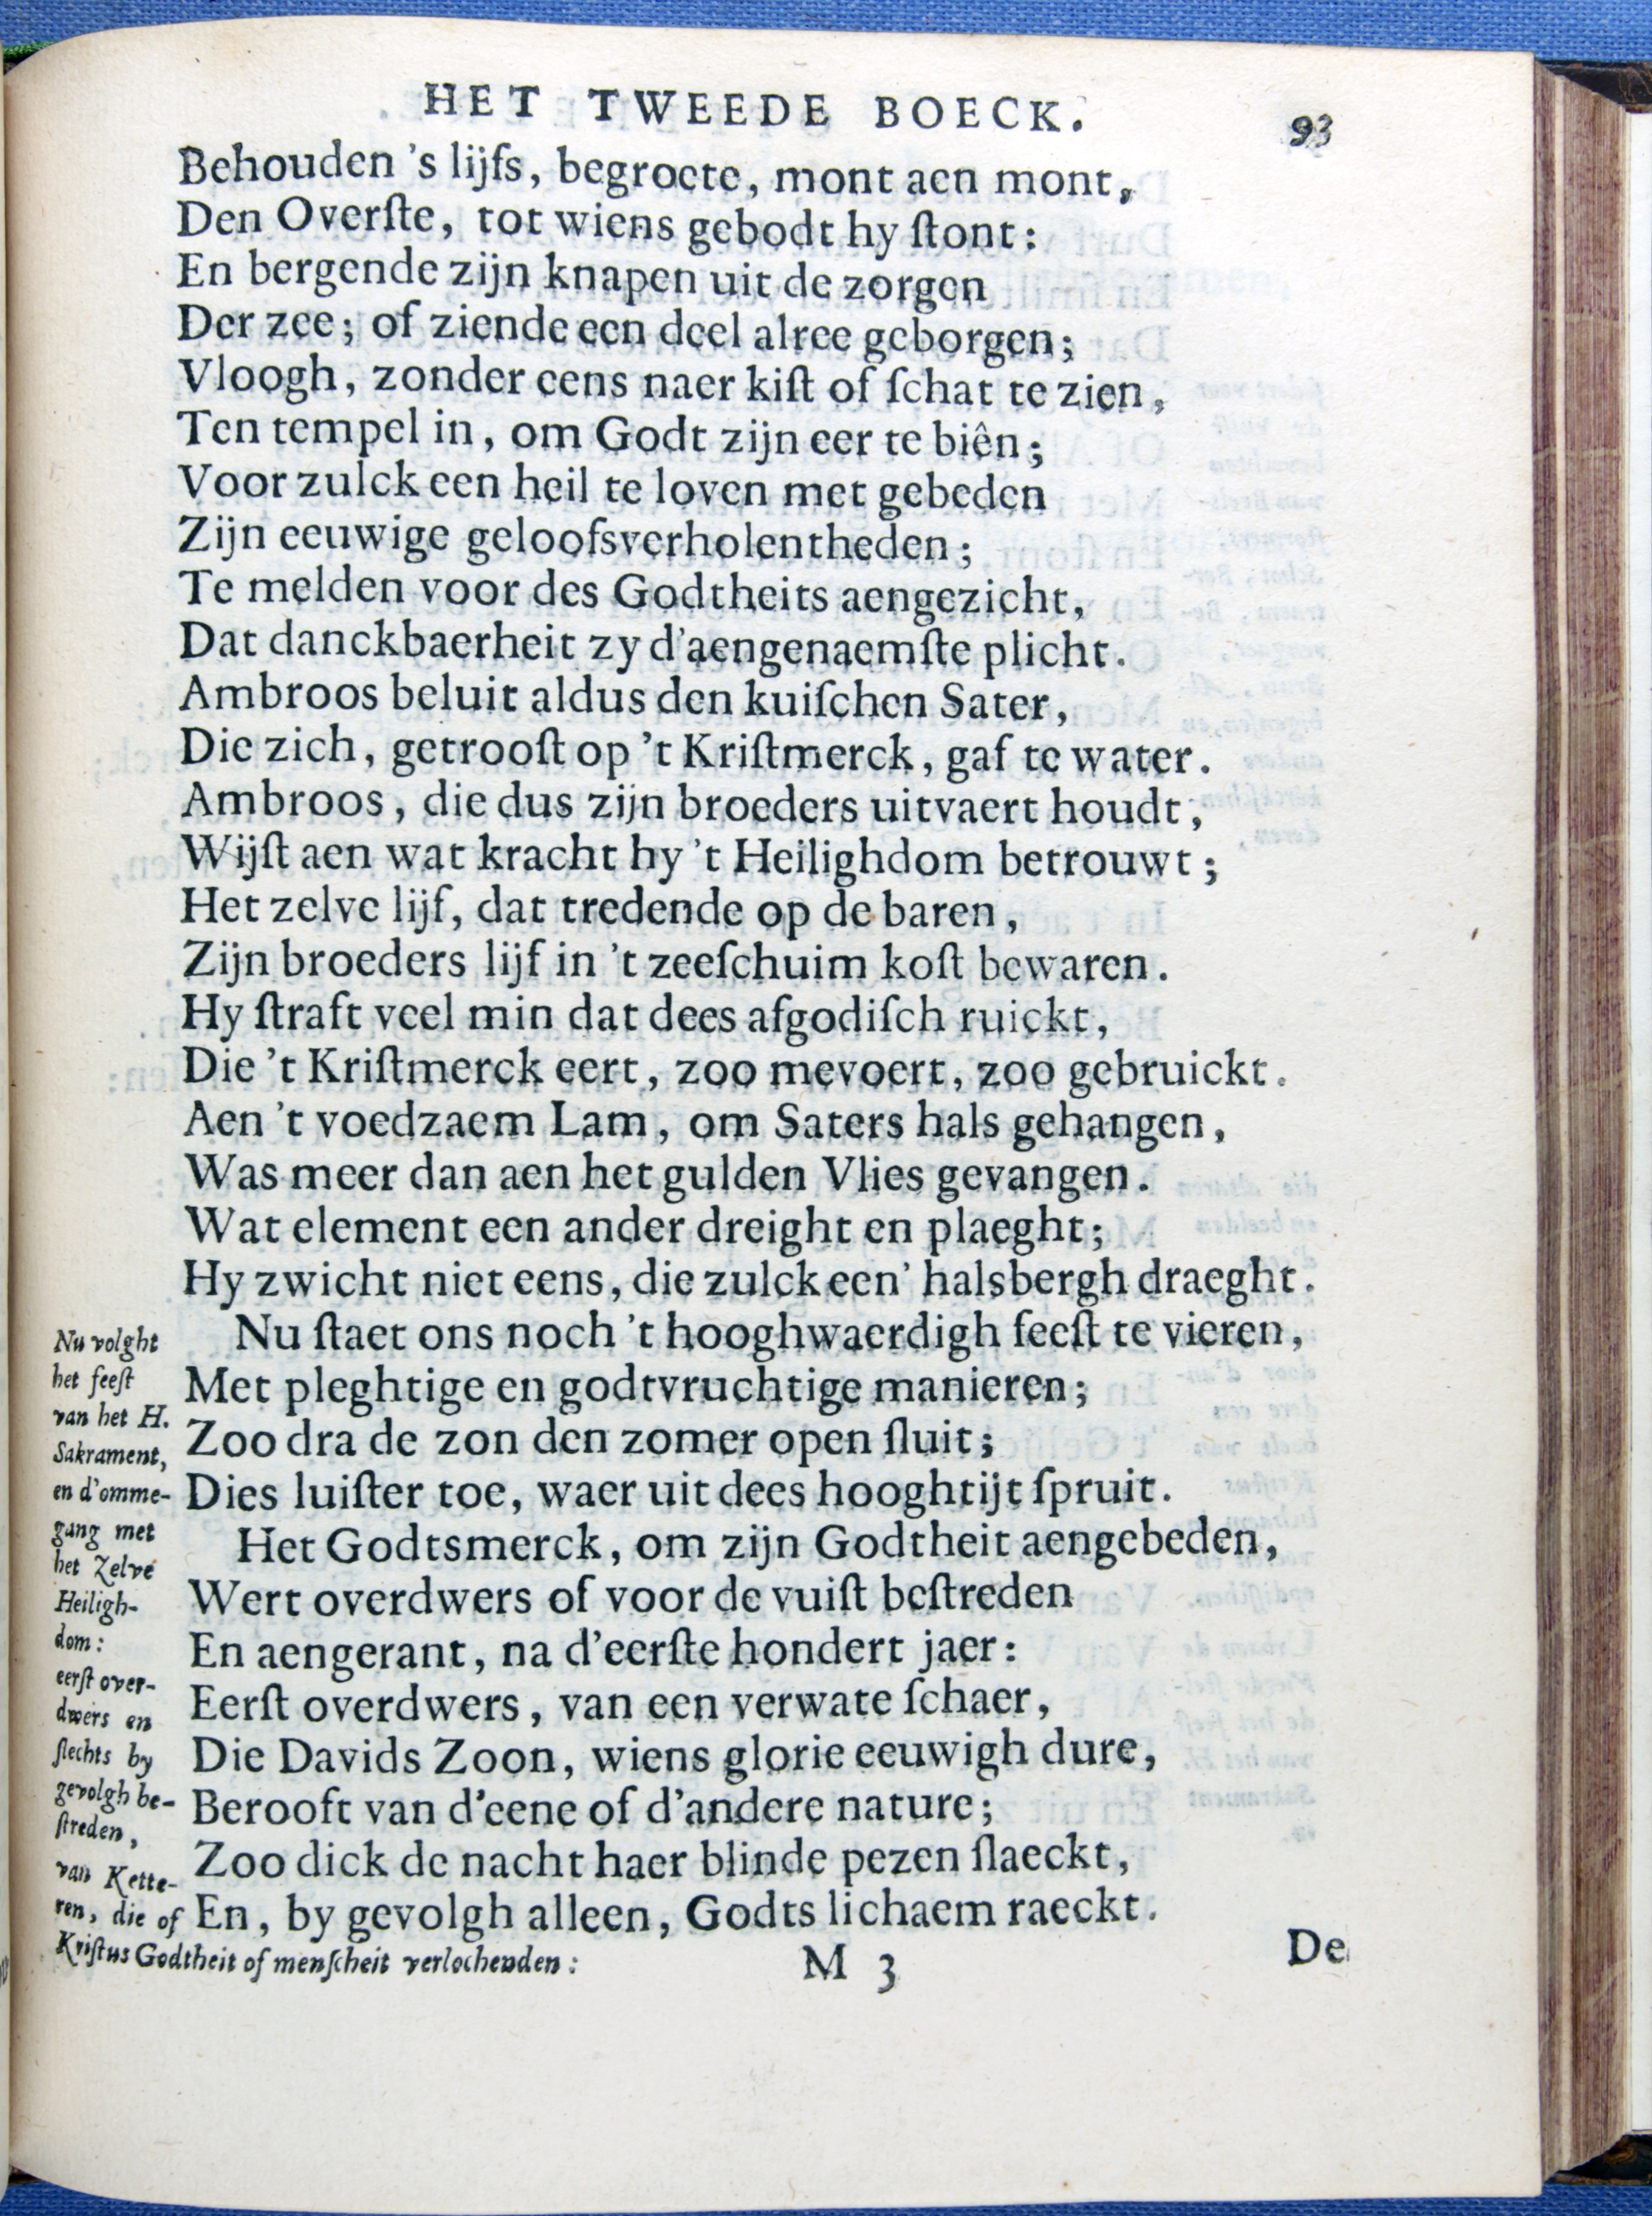 HET TWEEDE BOECK.
93
Behouden 's lijfs, begroete, mont aen mont,
Den Overſte, tot wiens gebodt hy ſtont:
En bergende zijn knapen uit de zorgen
Der zee; of ziende een deel alree geborgen;
Vloogh, zonder eens naer kiſt of ſchat te zien,
Ten tempel in, om Godt zijn eer te biên;
Voor zulck een heil te loven met gebeden
Zijn eeuwige geloofsverholentheden;
Te melden voor des Godtheits aengezicht,
Dat danckbaerheit zy d'aengenaemſte plicht.
Ambroos beluit aldus den kuiſchen Sater,
Die zich, getrooſt op 't Kriſtmerck, gaf te water.
Ambroos, die dus zijn broeders uitvaert houdt,
Wijſt aen wat kracht hy 't Heilighdom betrouwt;
Het zelve lijf, dat tredende op de baren,
Zijn broeders lijf in 't zeeſchuim koſt bewaren.
Hy ſtraft veel min dat dees afgodiſch ruickt,
Die 't Kriſtmerck eert, zoo mevoert, zoo gebruickt.
Aen 't voedzaem Lam, om Saters hals gehangen,
Was meer dan aen het gulden Vlies gevangen.
Wat element een ander dreight en plaeght;
Hy zwicht niet eens, die zulck een' halsbergh draeght.
Nu ſtaet ons noch 't hooghwaerdigh feeſt te vieren,
Met pleghtige en godtvruchtige manieren;
Zoo dra de zon den zomer open ſluit;
Dies luiſter toe, waer uit dees hooghtijt ſpruit.
Het Godtsmerck, om zijn Godtheit aengebeden,
Wert overdwers of voor de vuiſt beſtreden
En aengerant, na d'eerſte hondert jaer:
Eerſt overdwers, van een verwate ſchaer,
Die Davids Zoon, wiens glorie eeuwigh dure,
Berooft van d'eene of d'andere nature;
Zoo dick de nacht haer blinde pezen ſlaeckt,
En, by gevolgh alleen, Godts lichaem raeckt.
Nu volght
het feeſt
van het H.
Sakrament,
en d'omme-
gang met
het Zelve
Heiligh-
dom:
eerſt over-
dwers en
ſlechts by
gevolgh be-
ſtreden,
van Kette-
ren, die of
Kriſtus Godtheit of menſcheit verlochenden:
M 3
De